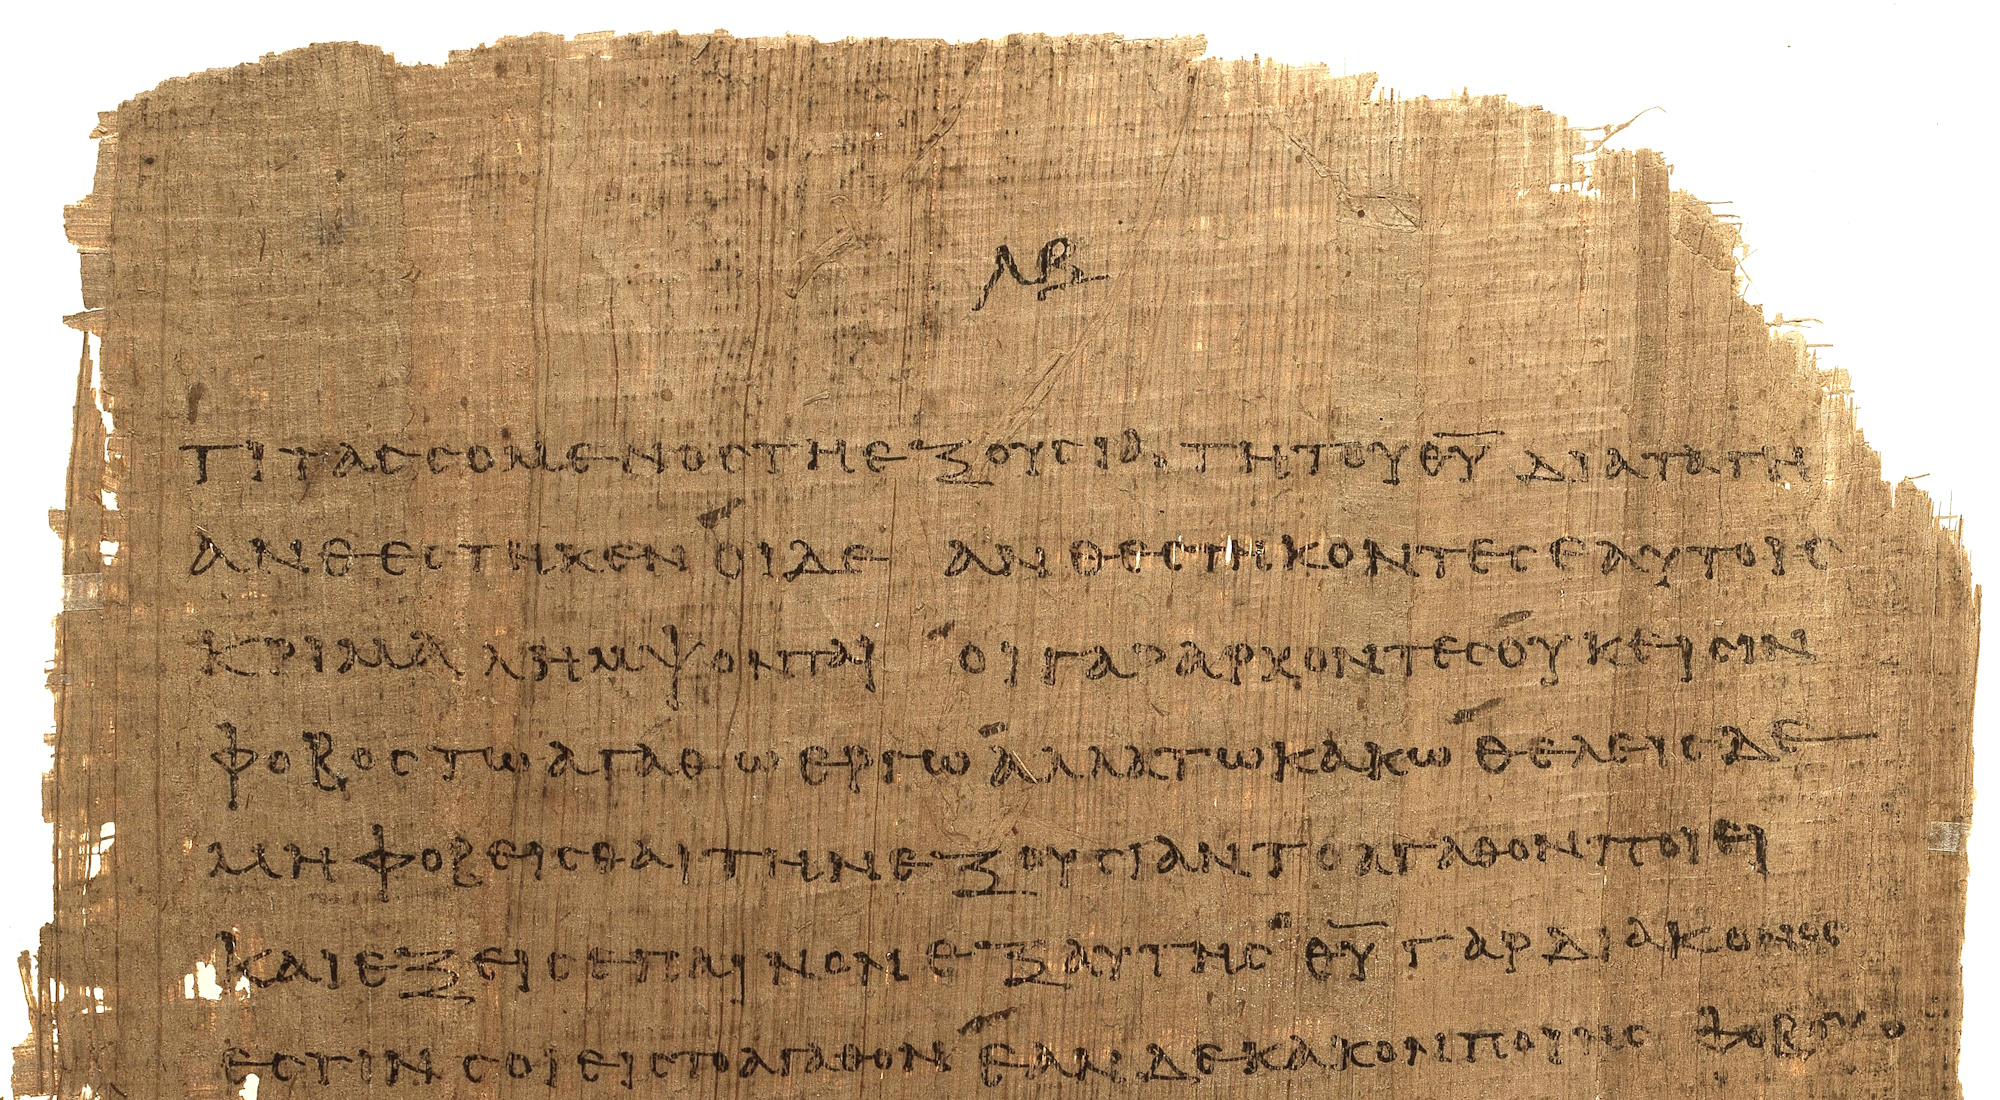 λβ
τιτασσομενοστηεξουσιατητουθυ διαταγη
ανθεστηκεν οιδε ανθεστηκοντεσεαυτοισ
κριμα λημψονται οιγαραρχοντεσουκεισιν
φοβοστωαγαθωεργωαλλατωκακωθελεισδε
μηφοβεισθαιτηνεξουσιαντοαγαθονποιει
καιεξεισεπαινονεξαυτησ θυ γαρδιακονοσ
εστινσοιειστοαγαθον εανδεκακονποιησ φοβουο